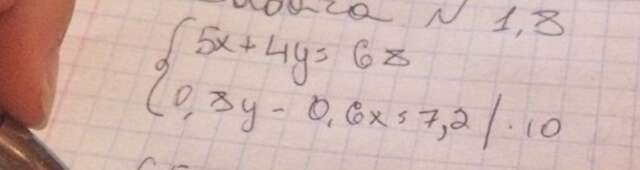 N 1,8
5x+4y=68
0,8y-0,6x=7,2/·10